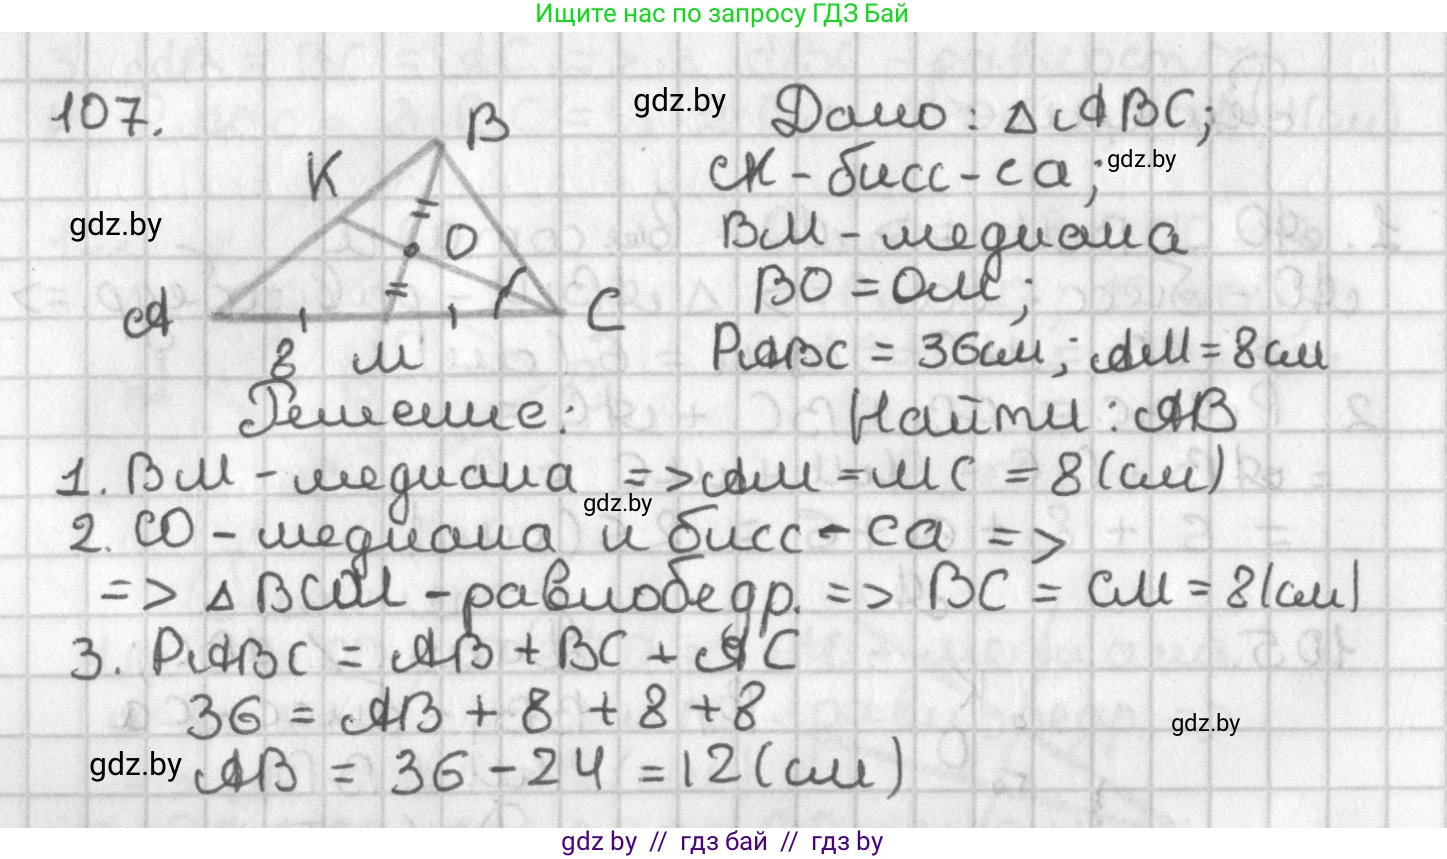 Ищите нас по запросу ГДЗ Бай
107.
gdz.by
Дано: △ABC;
CK - бисс-са;
gdz.by
BM - медиана
BO = OM;
P ABC = 36см; AM = 8см
Найти: AB
B
K
gdz.by
O
A
C
8 M
Решение:
1. BM - медиана => AM = MC = 8(см)
gdz.by
2. CO - медиана и бисс-са =>
=> △BCM - равнобедр. => BC = CM = 8(см)
3. P ABC = AB + BC + AC
36 = AB + 8 + 8 + 8
gdz.by
gdz.by
AB = 36 - 24 = 12(см)
gdz by // гдз бай // гдз by